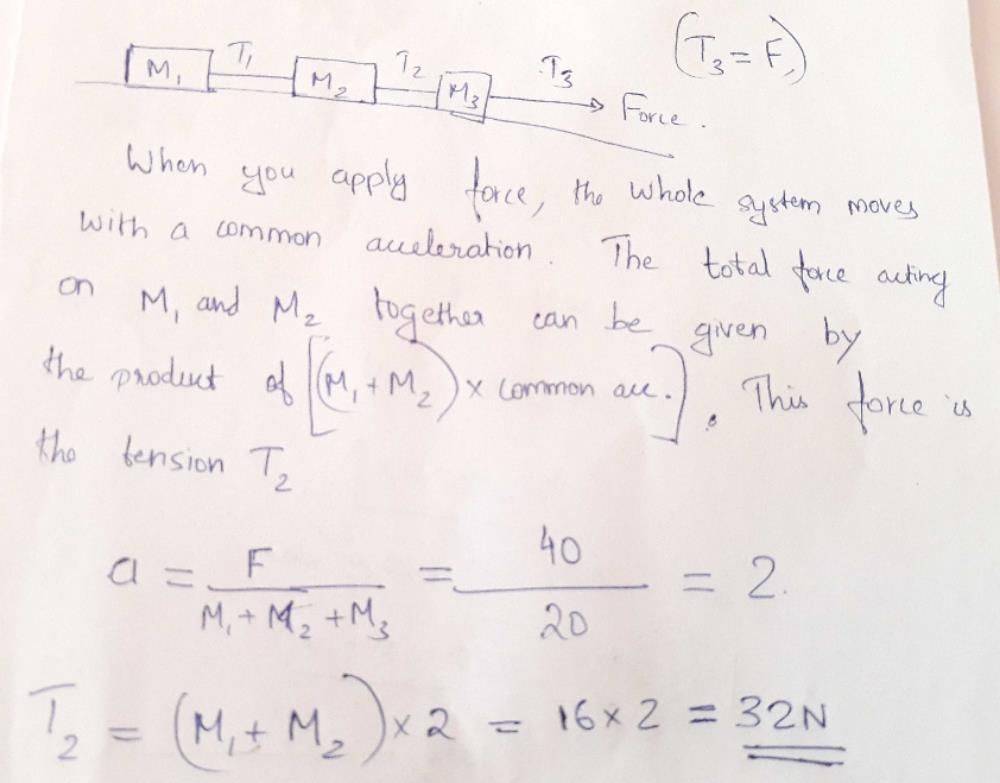 M₁ T₁ M₂ T₂ M₃ T₃ Force. (T₃ = F)
When you apply force, the whole system moves
with a common acceleration. The total force acting
on M₁ and M₂ together can be given by
the product of [(M₁ + M₂) x common acc.]. This force is
the tension T₂
a = F / M₁ + M₂ + M₃ = 40 / 20 = 2.
T₂ = (M₁ + M₂) x 2 = 16 x 2 = 32N